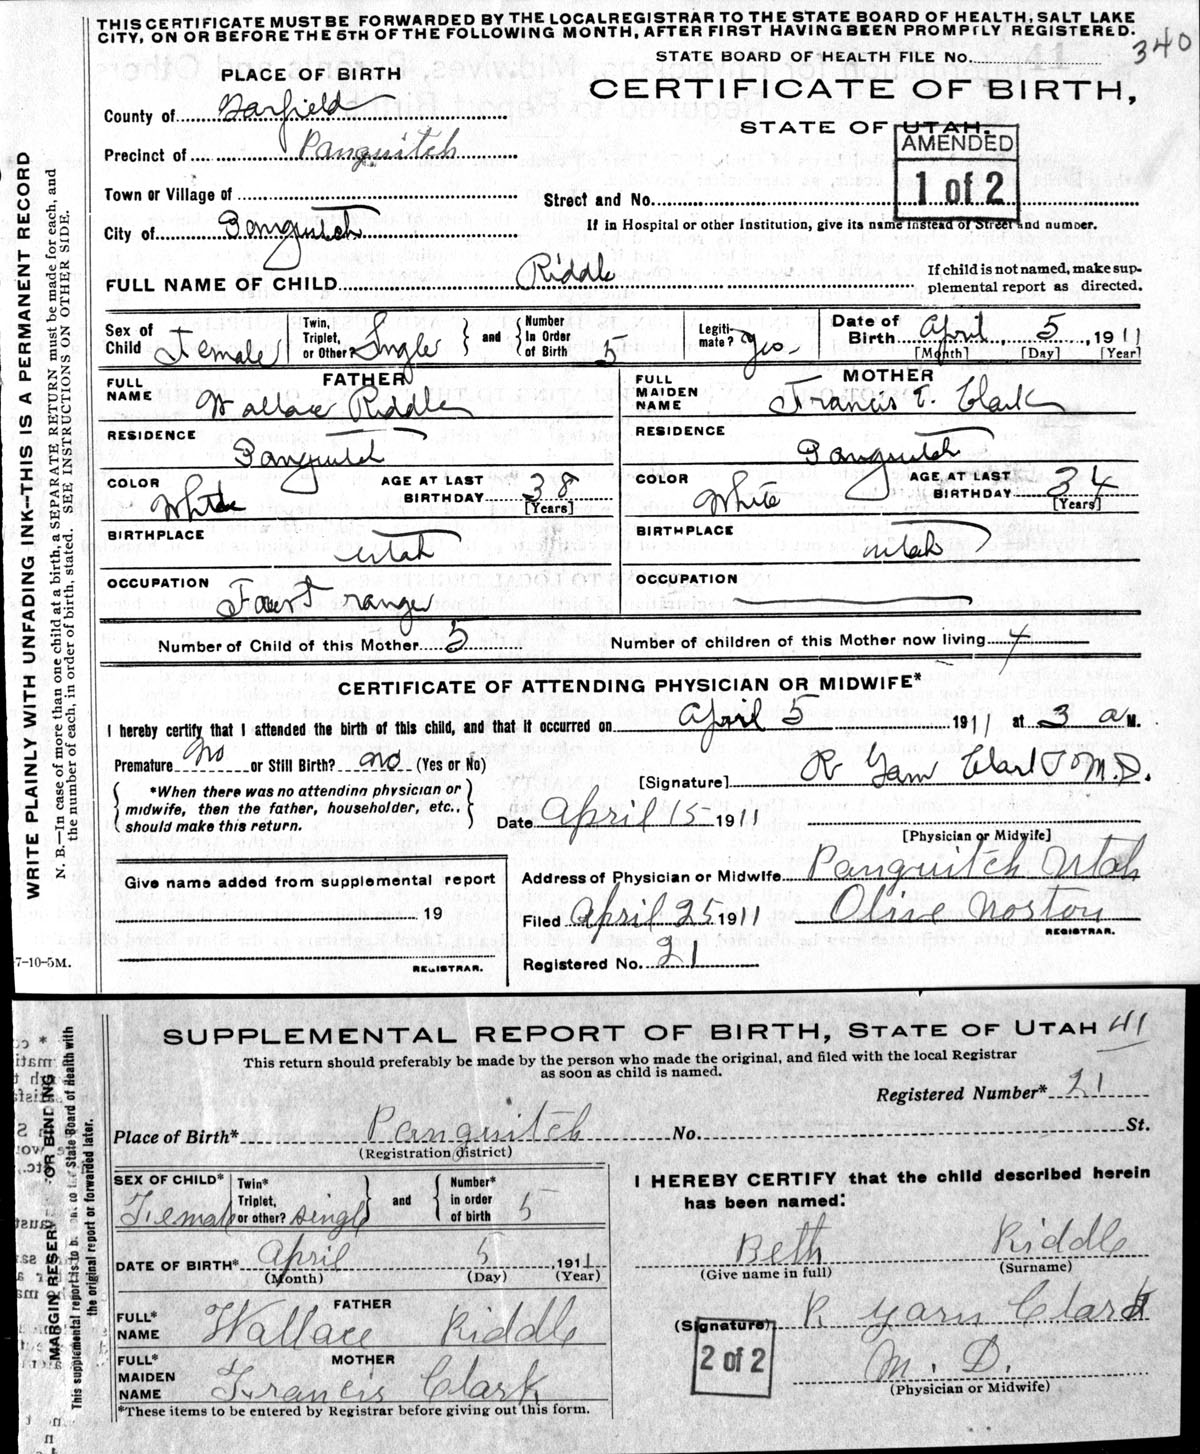 THIS CERTIFICATE MUST BE FORWARDED BY THE LOCAL REGISTRAR TO THE STATE BOARD OF HEALTH, SALT LAKE
CITY, ON OR BEFORE THE 5TH OF THE FOLLOWING MONTH, AFTER FIRST HAVING BEEN PROMPTLY REGISTERED.
340
STATE BOARD OF HEALTH FILE No.
PLACE OF BIRTH
CERTIFICATE OF BIRTH,
County of Garfield
STATE OF UTAH.
AMENDED
1 of 2
Precinct of Panguitch
Town or Village of
Street and No.
City of Panguitch
If in Hospital or other Institution, give its name instead of Street and number.
FULL NAME OF CHILD Riddle
If child is not named, make sup-
plemental report as directed.
Sex of Child Female
Twin, Triplet, or Other? Single and Number in Order of Birth 5
Legiti-mate? yes.
Date of Birth April 5, 1911
[Month] [Day] [Year]
FATHER
FULL NAME Wallace Riddle
RESIDENCE Panguitch
COLOR White AGE AT LAST BIRTHDAY 38 [Years]
BIRTHPLACE Utah
OCCUPATION Forest ranger
MOTHER
FULL MAIDEN NAME Francis E. Clark
RESIDENCE Panguitch
COLOR White AGE AT LAST BIRTHDAY 34 [Years]
BIRTHPLACE Utah
OCCUPATION
Number of Child of this Mother 5 Number of children of this Mother now living 4
CERTIFICATE OF ATTENDING PHYSICIAN OR MIDWIFE*
I hereby certify that I attended the birth of this child, and that it occurred on April 5 1911 at 3 a M.
Premature no or Still Birth? no (Yes or No)
[Signature] R Garn Clark M.D.
*When there was no attending physician or
midwife, then the father, householder, etc.,
should make this return.
Date April 15 1911
[Physician or Midwife]
Give name added from supplemental report
19
REGISTRAR.
Address of Physician or Midwife Panguitch Utah
Filed April 25 1911 Olive Norton
REGISTRAR.
Registered No. 21
WRITE PLAINLY WITH UNFADING INK—THIS IS A PERMANENT RECORD
N. B.—In case of more than one child at a birth, a SEPARATE RETURN must be made for each, and
the number of each, in order of birth, stated. SEE INSTRUCTIONS ON OTHER SIDE.
7-10-5M.
SUPPLEMENTAL REPORT OF BIRTH, STATE OF UTAH 41
This return should preferably be made by the person who made the original, and filed with the local Registrar
as soon as child is named.
Registered Number* 21
Place of Birth* Panguitch No. St.
(Registration district)
SEX OF CHILD* Female
Twin* Triplet, or other? single and Number* in order of birth 5
DATE OF BIRTH* April 5 1911
(Month) (Day) (Year)
FATHER
FULL* NAME Wallace Riddle
MOTHER
FULL* MAIDEN NAME Francis Clark
*These items to be entered by Registrar before giving out this form.
I HEREBY CERTIFY that the child described herein
has been named:
Beth Riddle
(Give name in full) (Surname)
(Signature) R Garn Clark
M. D.
(Physician or Midwife)
2 of 2
This supplemental report is to be to State Board of Health with
the original report or forwarded later.